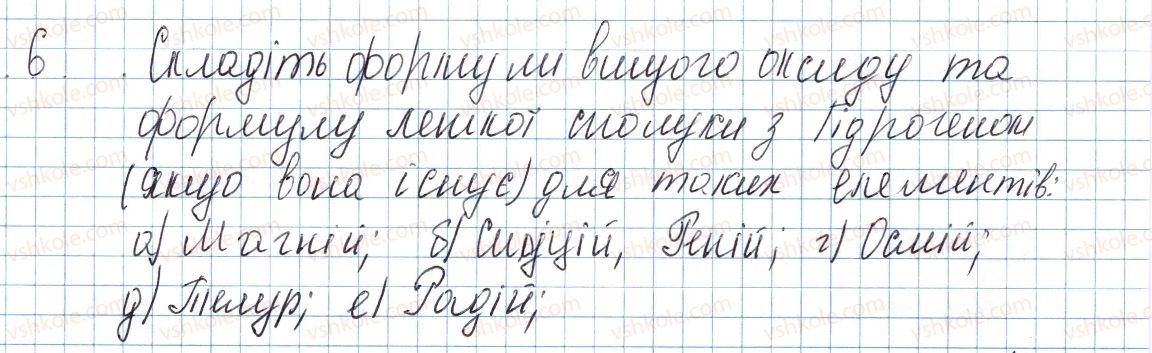 6. Складіть формули вищого оксиду та
формулу леткої сполуки з Гідрогеном
(якщо вона існує) для таких елементів:
а) Магній; б) Силіцій, Реній; г) Осмій;
д) Телур; е) Радій;